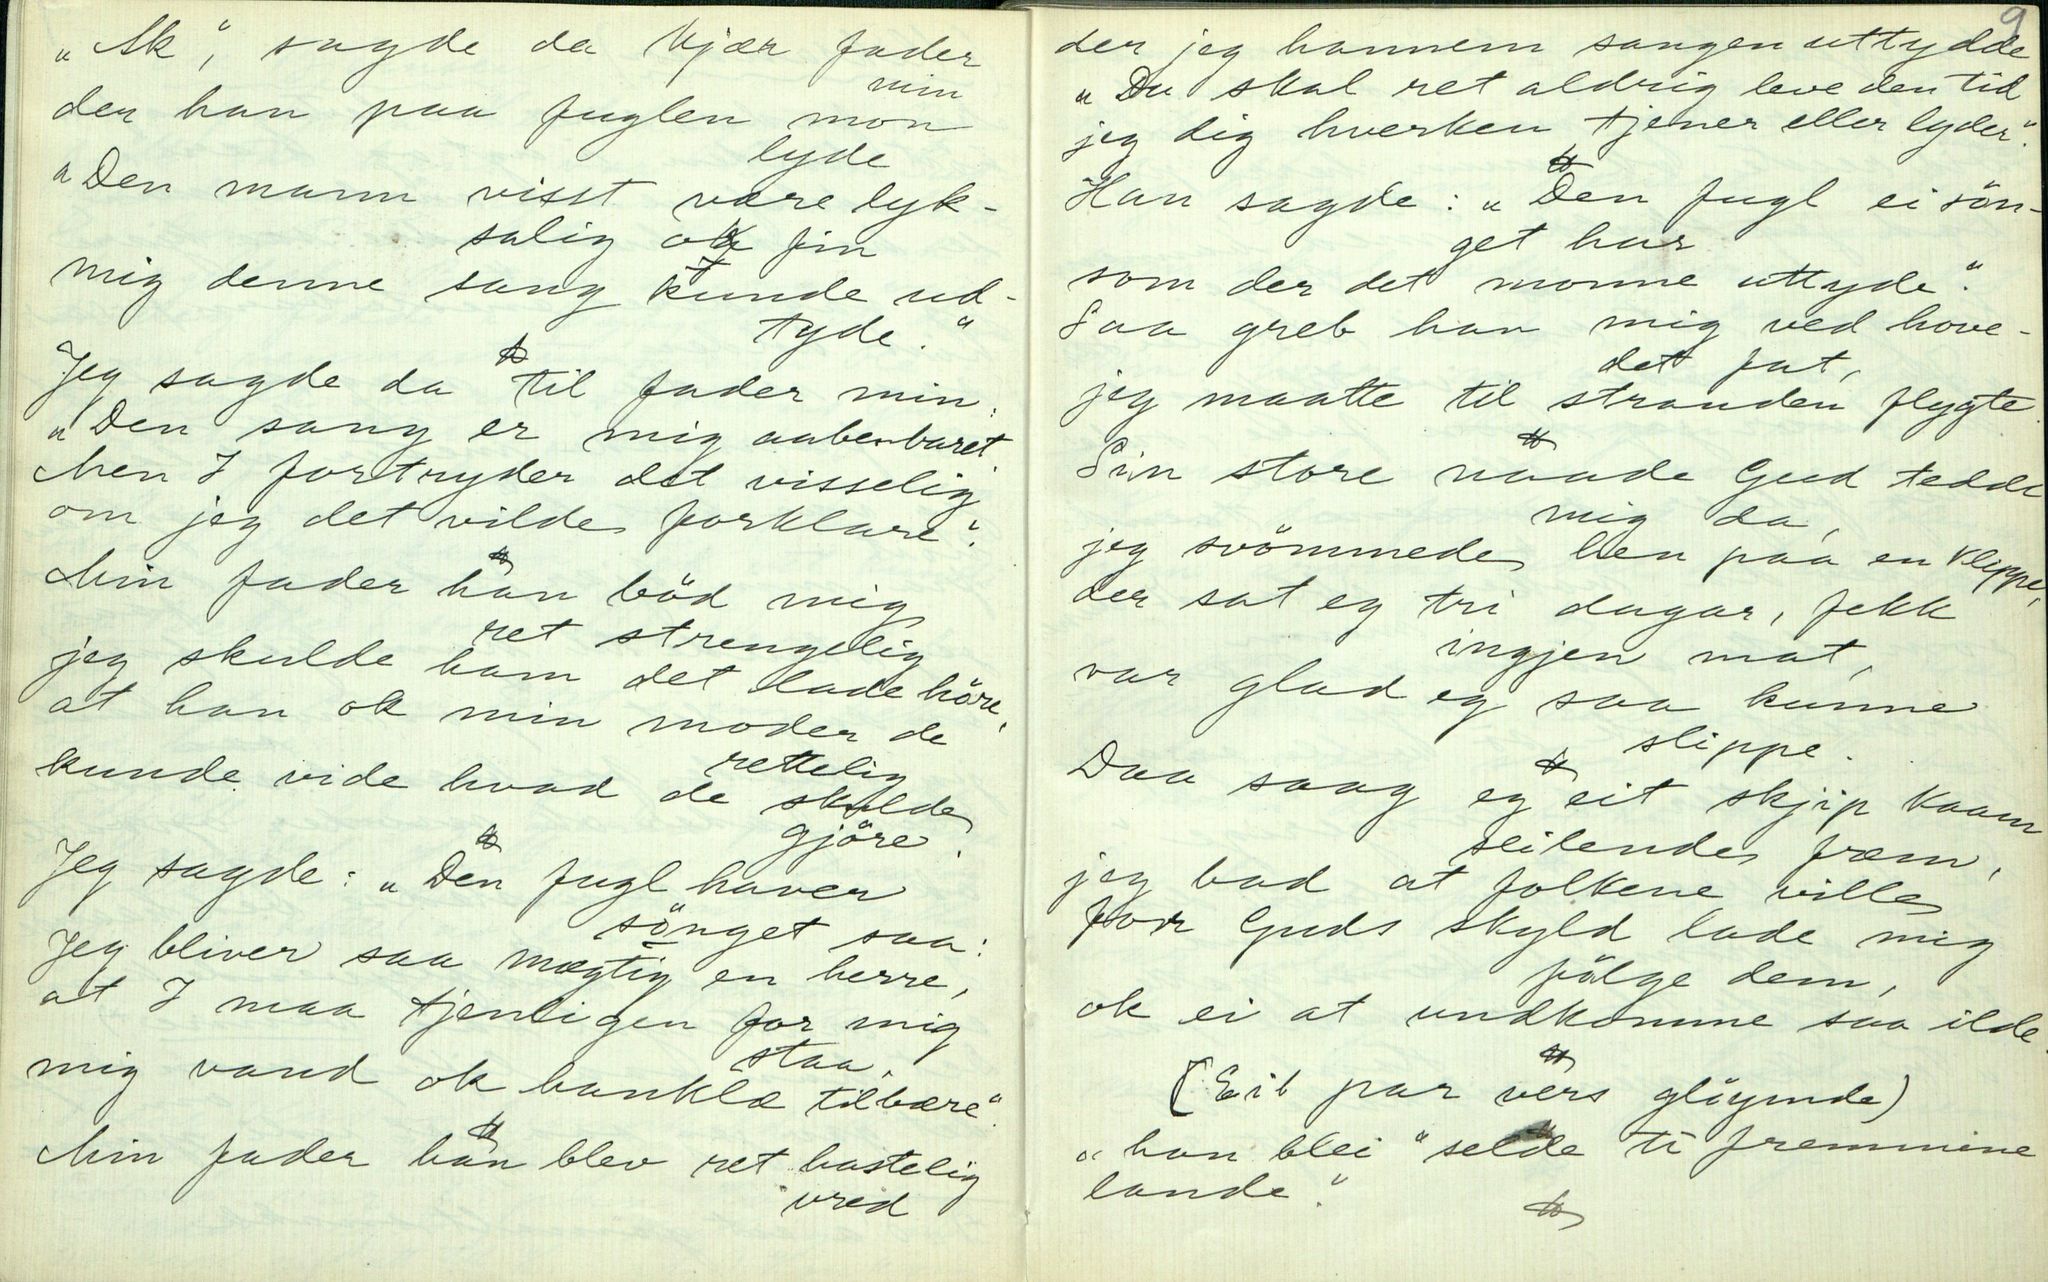 „Ak“, sagde da kjær fader
min
der han paa fuglen mon
lyde
„Den mann visst være lyk-
salig ok fin
mig denne sang kunde ud-
tyde.“
Jeg sagde da til fader min:
„Den sang er mig aabenbaret.
Men I fortryder det visselig
om jeg det vilde forklare“.
Min fader han böd mig
ret strengelig
jeg skulde ham det lade höre,
at han ok min moder de
rettelig
kunde vide hvad de skulde
gjöre.
Jeg sagde: „Den fugl haver
sönget saa:
Jeg bliver saa mægtig en herre,
at I maa tjenligen for mig
staa,
mig vand ok hanklæ tilbære“.
Min fader han blev ret hastelig
vred
9
der jeg hannem sangen uttydde
„Du skal ret aldrig leve den tid
jeg dig hverken tjener eller lyder“.
Han sagde: „Den fugl ei sön-
get har
som der det monne uttyde“.
Saa greb han mig ved hove-
det fat,
jeg maatte til stranden flygte.
Sin store naade Gud tedde
mig da,
jeg svömmede hen paa en klippe,
der sat eg tri dagar, fekk
ingjen mat,
var glad eg saa kunne
slippe.
Daa saag eg eit skjip kaam
seilende frem,
jeg bad at folkene ville
for Guds skyld lade mig
fölge dem,
ok ei at undkomme saa ilde.
(Eit par vers glöymde)
„han blei“ selde ti fremmine
lande“.